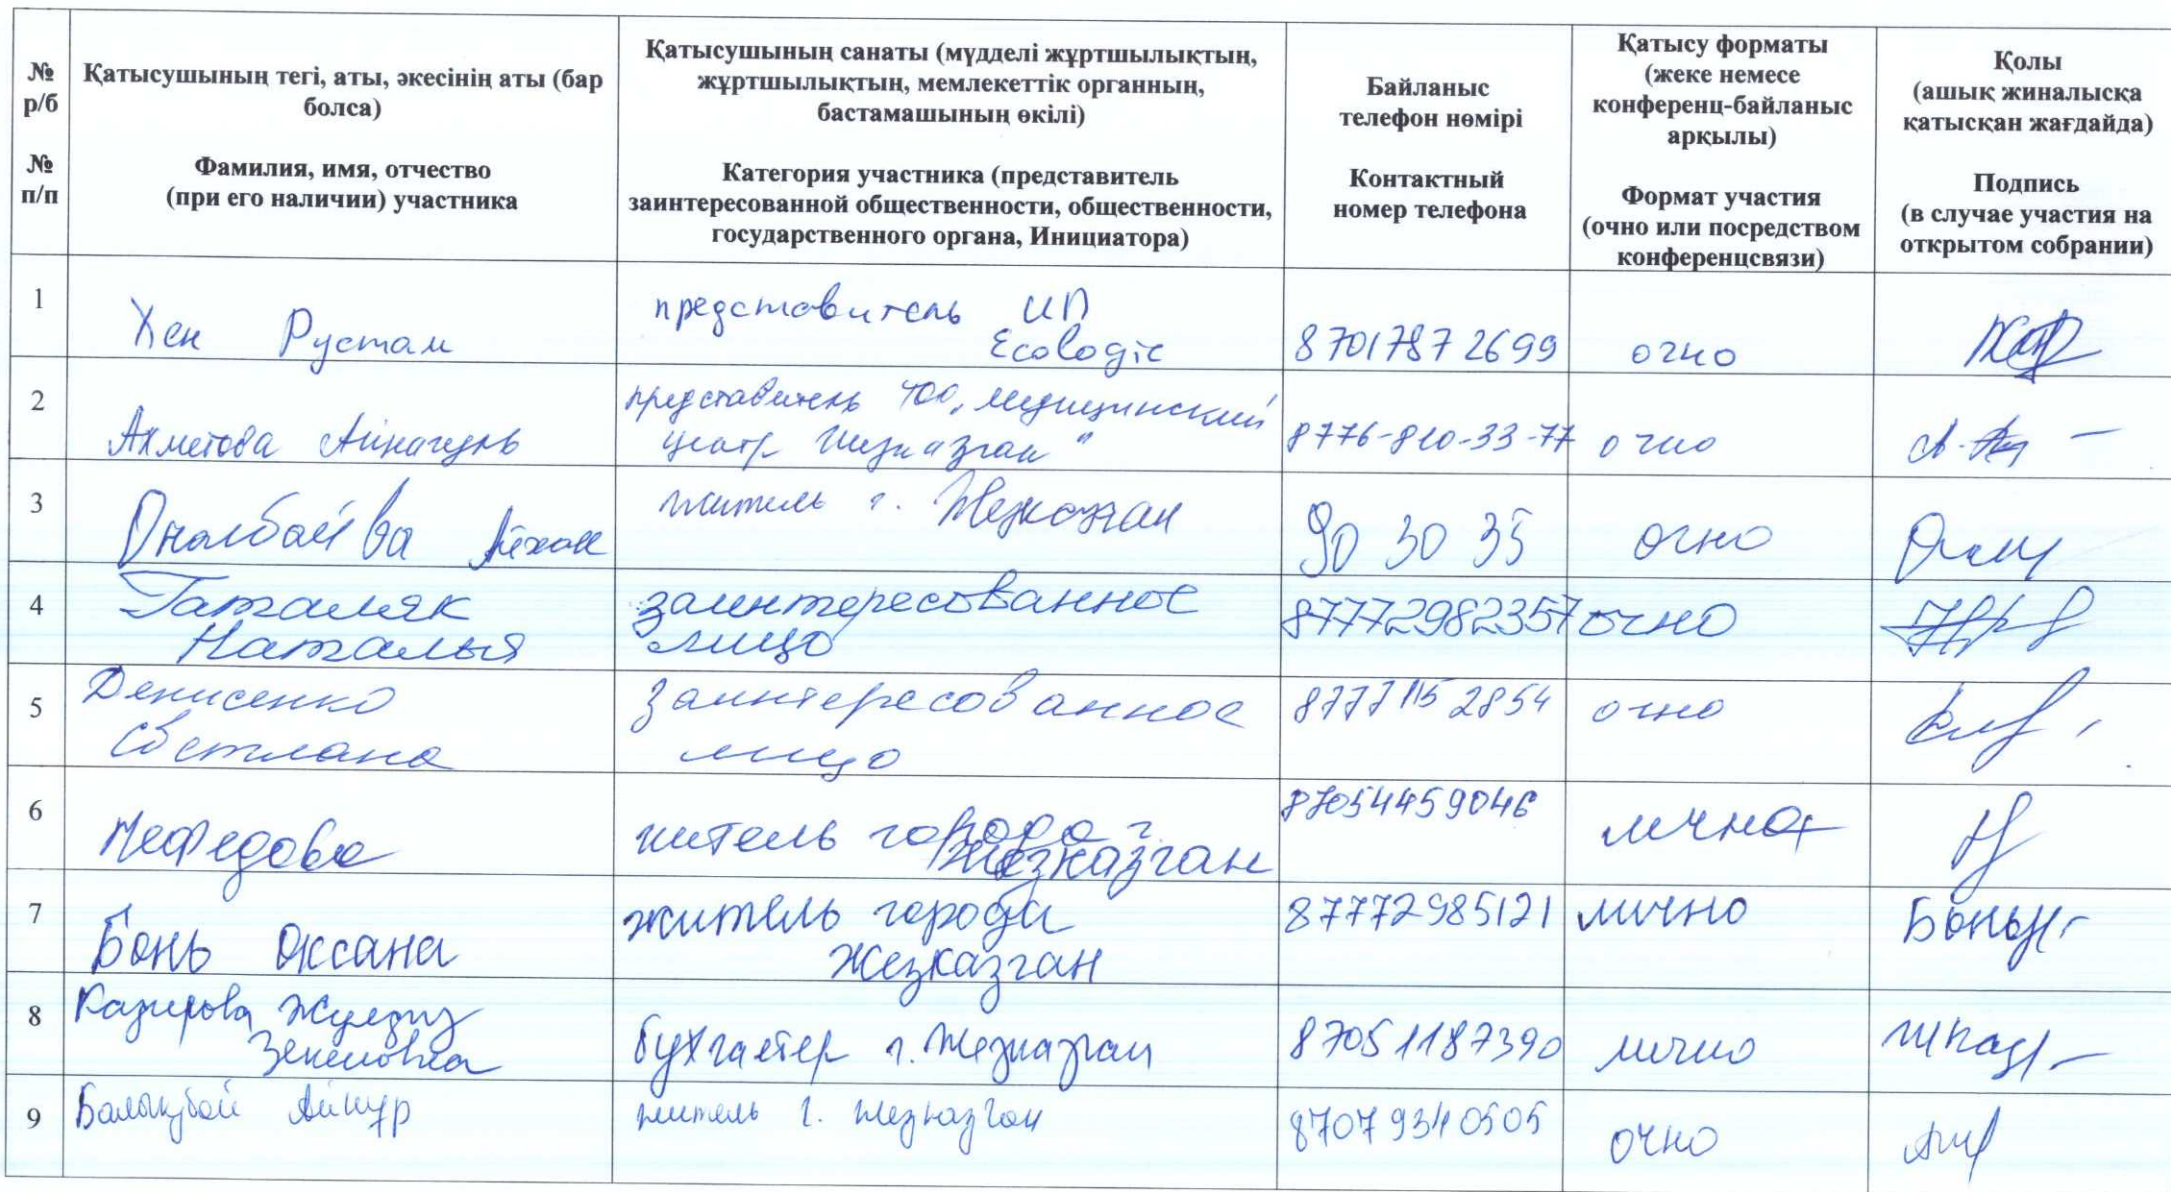 №
р/б
№
п/п
Қатысушының тегі, аты, әкесінің аты (бар
болса)
Фамилия, имя, отчество
(при его наличии) участника
Қатысушының санаты (мүдделі жұртшылықтың,
жұртшылықтың, мемлекеттік органның,
бастамашының өкілі)
Категория участника (представитель
заинтересованной общественности, общественности,
государственного органа, Инициатора)
Байланыс
телефон нөмірі
Контактный
номер телефона
Қатысу форматы
(жеке немесе
конференц-байланыс
арқылы)
Формат участия
(очно или посредством
конференцсвязи)
Қолы
(ашық жиналысқа
қатысқан жағдайда)
Подпись
(в случае участия на
открытом собрании)
1
Хен Рустам
представитель ИП
Ecologic
8 701787 2699
очно
2
Ахметова Айнагуль
представитель ТОО "медицинский
центр Жезказган"
8776-810-33-77
очно
3
житель г. Жезказган
90 30 35
очно
4
Наталья
заинтересованное
лицо
87772982357
очно
5
Денисенко
Светлана
заинтересованное
лицо
8777 115 2854
очно
6
Нефедова
житель города г.
Жезказган
87054459046
лично
7
Бонь Оксана
житель города
Жезказган
87772985121
лично
Бонь
8
Жулдыз
бухгалтер г. Жезказган
8 705 1187390
лично
9
Айнур
житель г. Жезказган
8707 9340505
очно